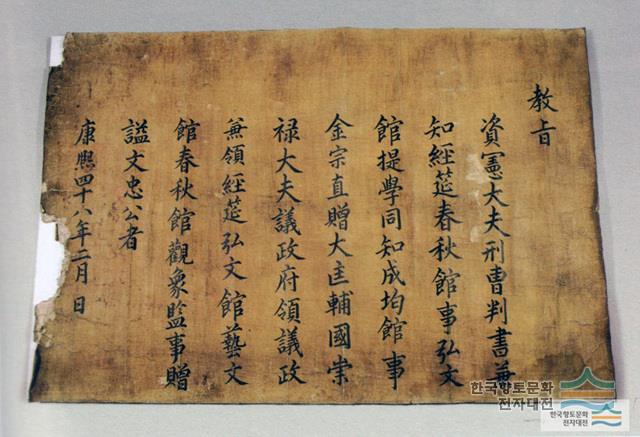 教旨
資憲大夫刑曹判書兼
知經筵春秋館事弘文
館提學同知成均館事
金宗直贈大匡輔國崇
禄大夫議政府領議政
兼領經筵弘文館藝文
館春秋館觀象監事贈
諡文忠公者
康熙四十八年二月 日
한국향토문화
전자대전
한국향토문화
전자대전